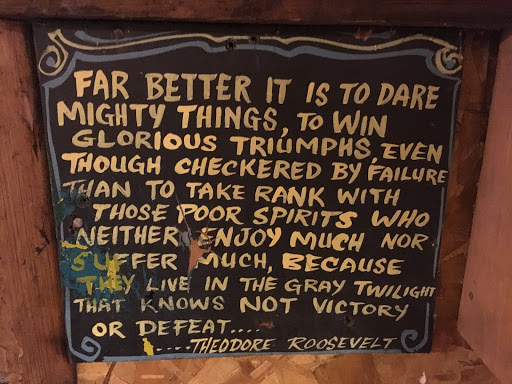 FAR BETTER IT IS TO DARE
MIGHTY THINGS, TO WIN
GLORIOUS TRIUMPHS, EVEN
THOUGH CHECKERED BY FAILURE
THAN TO TAKE RANK WITH
THOSE POOR SPIRITS WHO
NEITHER ENJOY MUCH NOR
SUFFER MUCH, BECAUSE
THEY LIVE IN THE GRAY TWILIGHT
THAT KNOWS NOT VICTORY
OR DEFEAT....
....THEODORE ROOSEVELT